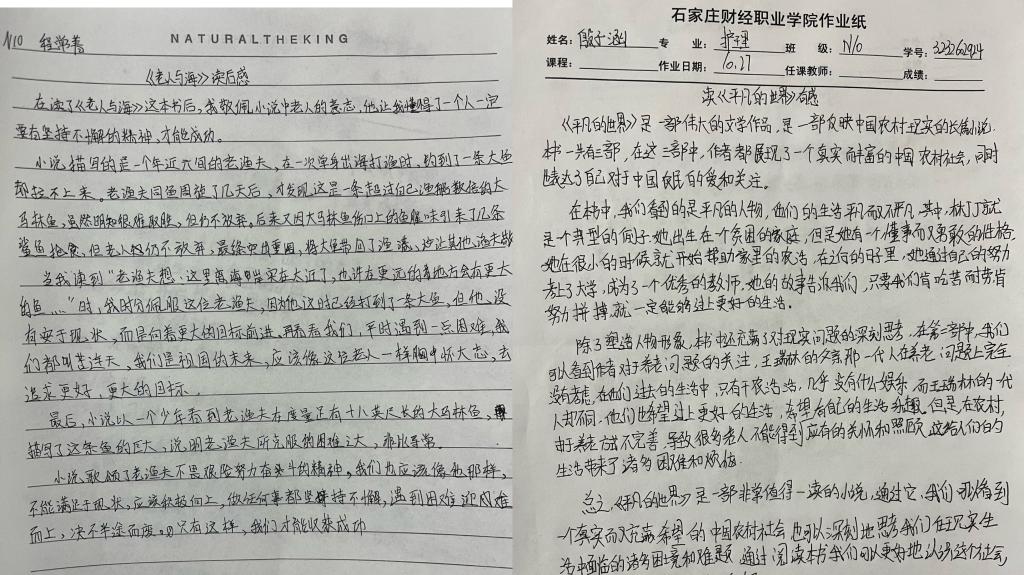 N10 程常善
NATURALTHEKING
《老人与海》读后感
在读了《老人与海》这本书后，我敬佩小说中老人的意志，他让我懂得了一个人一定
要有坚持不懈的精神，才能成功。
小说描写的是一个年近六旬的老渔夫，在一次单身出海打渔时，钓到了一条大鱼
却拉不上来。老渔夫同鱼周旋了几天后，才发现这是一条超过自己渔船数倍的大
马林鱼，虽然明知很难取胜，但仍不放弃。后来又因大马林鱼伤口上的鱼腥味引来了几条
鲨鱼抢食，但老人仍不放弃，最终突出重围，将大鱼带回了渔港，让其他渔夫
当我读到"老渔夫想：这里离海岸实在太近了，也许在更远的地方会有更大
的鱼……"时，我十分佩服这位老渔夫，因为他这时已经打到了一条大鱼，但他没
有安于现状，而是向着更大的目标前进。再看看我们，平时遇到一点困难，我
们都叫苦连天，我们是祖国的未来，应该像这位老人一样胸中怀大志，去
追求更好，更大的目标。
最后，小说以一个少年看到老渔夫在度量足有十八英尺长的大马林鱼，
描写了这条鱼的巨大，说明老渔夫所克服的困难之大，非比寻常。
小说歌颂了老渔夫不畏艰险努力奋斗的精神。我们也应该像他那样，
不能满足于现状，应该积极向上，做任何事都坚持不懈，遇到困难迎难
而上，决不半途而废。只有这样，我们才能收获成功
石家庄财经职业学院作业纸
姓名：殷子涵 专 业：护理 班 级：N10 学号：323262924
课程： 作业日期：10.27 任课教师： 成绩：
读《平凡的世界》有感
《平凡的世界》是一部伟大的文学作品，是一部反映中国农村现实的长篇小说.
本书一共有三部，在这三部中，作者都展现了一个真实而丰富的中国农村社会，同时
表达了自己对于中国农民的爱和关注。
在本书中，我们看到的是平凡的人物，他们的生活平凡而又不平凡，其中，林丁丁就
是一个典型的例子，她出生在一个贫困的家庭，但是她有一个懂事而又勇敢的性格.
她在很小的时候就开始帮助家里的农活，在之后的日子里，她通过自己的努力
考上了大学，成为了一个优秀的教师，她的故事告诉我们，只要我们肯吃苦耐劳肯
努力拼搏，就一定能够过上更好的生活。
除了塑造人物形象，本书还充满了对现实问题的深刻思考，在第三部中，我们
可以看到作者对于养老问题的关注，王瑞林的父亲那一代人在养老问题上完全
没有考虑，在他们过去的生活中，只有干农活，几乎没有什么娱乐，而王瑞林的一代
人却不同，他们也希望过上更好的生活，希望有自己的生活乐趣，但是，在农村，
由于养老方式不完善，导致很多老人不能得到应有的关怀和照顾，这给人们的
生活带来了诸多困难和烦恼.
总之，《平凡的世界》是一部非常值得一读的小说，通过它，我们可以看到
一个真实而又充满希望的中国农村社会，也可以深刻地思考我们在现实生
活中面临的诸多困境和难题，通过阅读本书我们可以更好地认识这个社会，